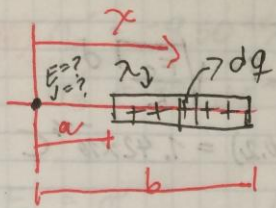 x
E=?
V=?
λ
dq
+ + + + +
a
b